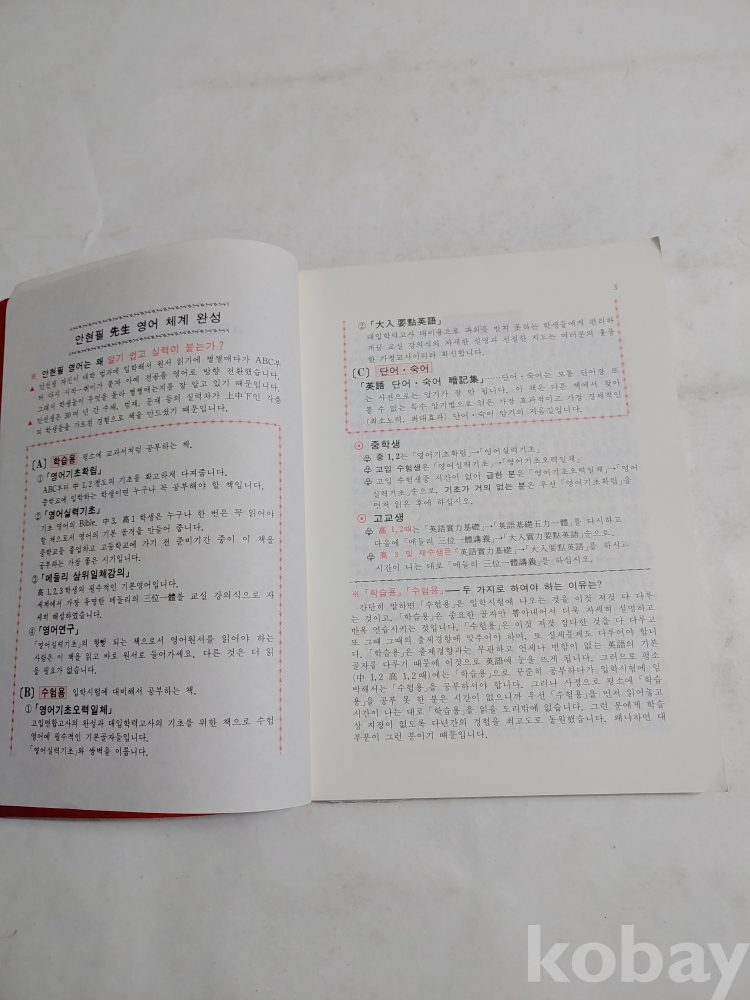 안현필 先生 영어 체계 완성
※ 안현필 영어는 왜 알기 쉽고 실력이 붙는가?
▲ 안선생 자신이 대학 법과에 입학해서 원서 읽기에 쩔쩔매다가 ABC부
터 다시 시작…취미가 붙자 아예 전공을 영어로 방향 전환했습니다.
그래서 학생들이 무엇을 몰라 쩔쩔매는지를 잘 알고 있기 때문입니다.
▲ 안선생은 30여 년 간 수재, 범재, 둔재 등의 실력차가 上中下인 각층
의 학생들을 가르친 경험으로 책을 만드셨기 때문입니다.
[A] 학습용 평소에 교과서처럼 공부하는 책.
①「영어기초확립」
ABC부터 中 1, 2 정도의 기초를 확고하게 다져줍니다.
중학교에 입학하는 학생이면 누구나 꼭 공부해야 할 책입니다.
②「영어실력기초」
기초 영어의 Bible, 中 3, 高 1 학생은 누구나 한 번은 꼭 읽어야
할 책으로서 영어의 기본 골격을 만들어 줍니다.
중학교를 졸업하고 고등학교에 가기 전 준비기간 중이 이 책을
공부하는 가장 좋은 시기입니다.
③「메들리 삼위일체강의」
高 1, 2, 3 학생의 필수적인 기본영어입니다.
세계에서 가장 유명한 메들리의 三位一體를 교실 강의식으로 자
세히 해설하였습니다.
④「영어연구」
「영어실력기초」의 형뻘 되는 책으로서 영어원서를 읽어야 하는
사람은 이 책을 읽고 바로 원서로 들어가세요. 다른 것은 더 읽
을 필요가 없습니다.
[B] 수험용 입학시험에 대비해서 공부하는 책.
①「영어기초오력일체」
고입연합고사의 완성과 대입학력고사의 기초를 위한 책으로 수험
영어에 필수적인 기본공자들입니다.
「영어실력기초」와 쌍벽을 이룹니다.
5
②「大入 要點英語」
대입학력고사 대비용으로 과외를 받지 못하는 학생들에게 편리하
게끔 교실 강의식의 자세한 설명과 친절한 지도는 여러분의 훌륭
한 가정교사이리라 확신합니다.
[C] 단어·숙어
「英語 단어·숙어 暗記集」……단어·숙어는 보통 단어장 또
는 사전으로는 암기가 잘 안 됩니다. 이 책은 다른 책에서 찾아
볼 수 없는 특수 암기법으로 엮은 가장 효과적이고 가장 경제적인
(최소노력, 최대효과) 단어·숙어 암기의 지름길입니다.
◉ 중학생
♧ 중 1, 2는「영어기초확립」→「영어실력기초」
♧ 고입 수험생은「영어실력기초」→「영어기초오력일체」
♧ 고입 수험생중 시간이 없어 급한 분은「영어기초오력일체」→「영어
실력기초」순으로, 기초가 거의 없는 분은 우선「영어기초확립」을
먼저 읽은 후에 하십시오.
◉ 고교생
♧ 高 1, 2 때는「英語實力基礎」→「英語基礎五力一體」를 다시하고
다음에「메들리 三位一體講義」→「大入實力要點英語」순으로.
♧ 高 3 및 재수생은「英語實力基礎」→「大入要點英語」를 하시고
시간이 나는 대로「메들리 三位一體講義」를 하십시오.
※「학습용」「수험용」——두 가지로 하여야 하는 이유는?
간단히 말하면「수험용」은 입학시험에 나오는 것을 이것 저것 다 다루
는 것이고,「학습용」은 중요한 골자만 뽑아내어서 더욱 자세히 설명하고
반복 연습시키는 것입니다.「수험용」은 이것 저것 잡다한 것을 다 다루고
또 그때 그때의 출제경향에 맞추어야 하며, 또 실제문제도 다루어야 합니
다.「학습용」은 출제경향과는 무관하고 언제나 변함이 없는 英語의 기본
골자를 다루기 때문에 이것으로 英語에 눈을 뜨게 됩니다. 그러므로 평소
(中 1, 2 高 1, 2 때)에는「학습용」으로 꾸준히 공부하다가 입학시험에 임
박해서는「수험용」을 공부하셔야 합니다. 그러나 사정으로 평소에「학습
용」을 공부 못 한 분은 시간이 없으니까 우선「수험용」을 먼저 읽어놓고
시간이 나는 대로「학습용」을 읽을 도리밖에 없습니다. 그런 분에게 학습
상 지장이 없도록 다년간의 경험을 최고도로 동원했습니다. 왜냐하면 대
부분이 그런 분이기 때문입니다.
kobay